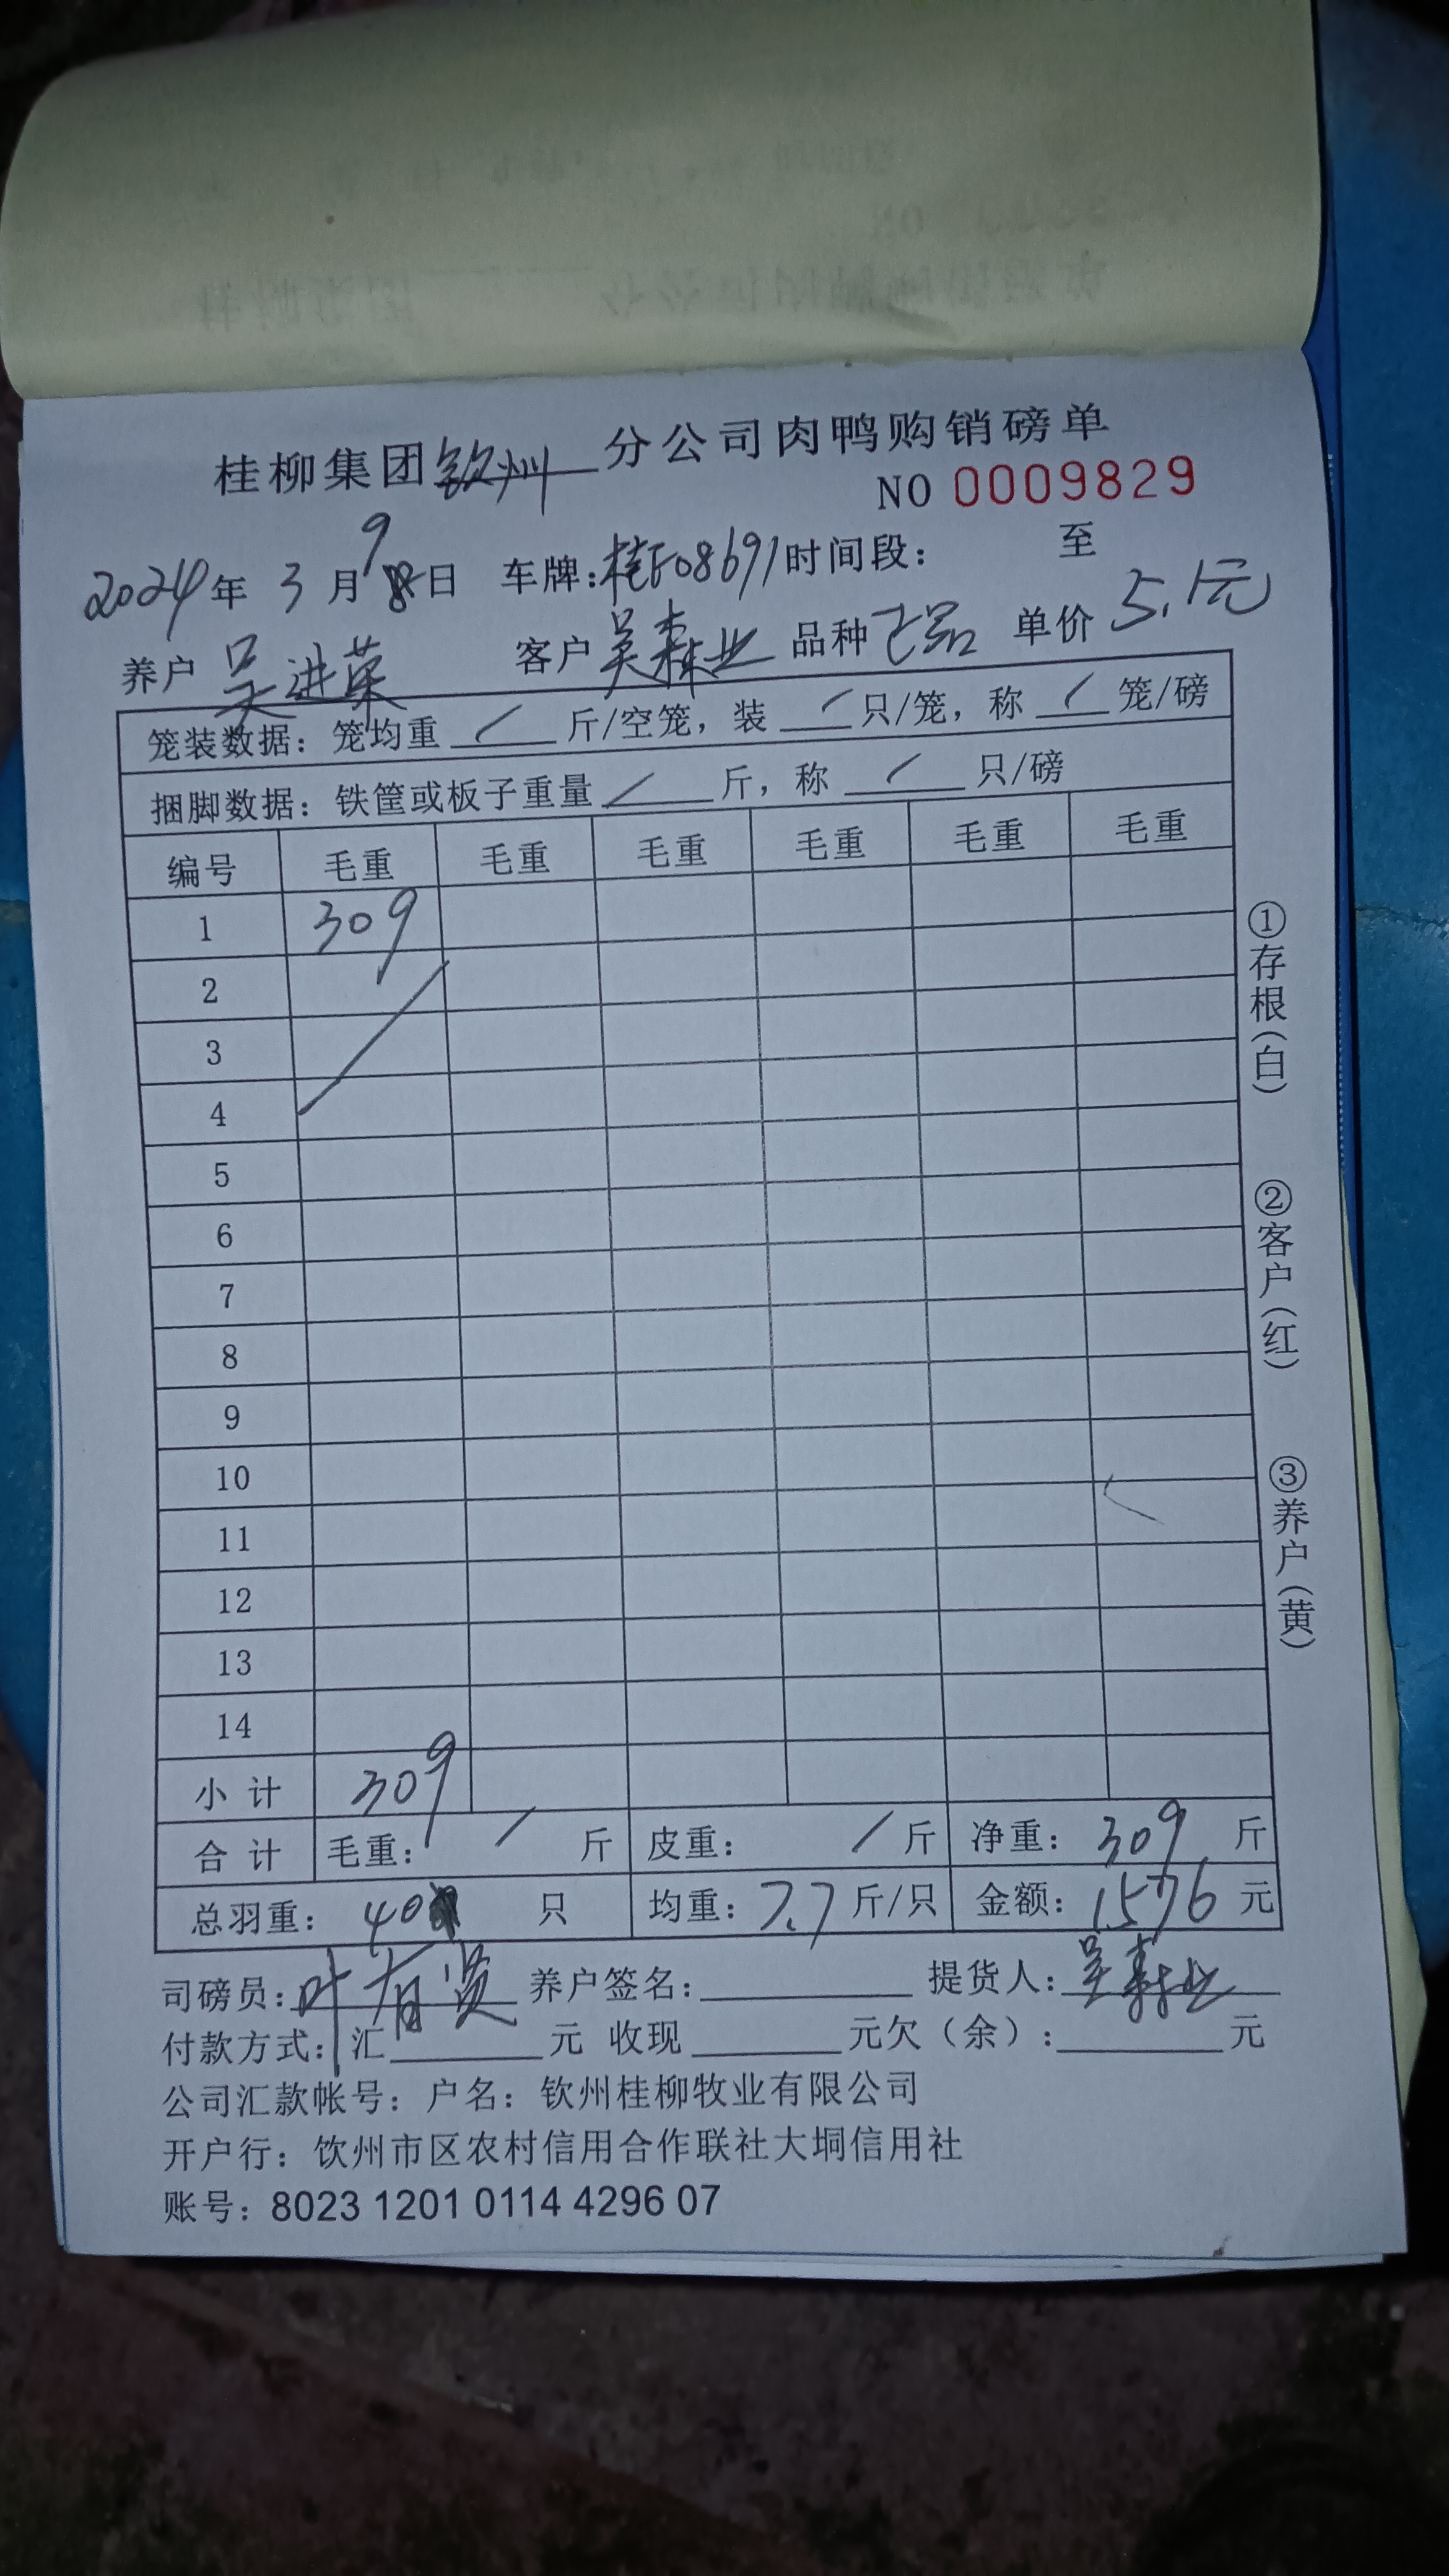 桂柳集团钦州分公司肉鸭购销磅单
NO 0009829
2024年 3月 9日 车牌:桂F08691 时间段: 至
养户 吴进荣 客户 吴森业 品种 单价 5.1元
笼装数据: 笼均重 / 斤/空笼, 装 / 只/笼, 称 / 笼/磅
捆脚数据: 铁筐或板子重量 / 斤, 称 / 只/磅
编号 毛重 毛重 毛重 毛重 毛重 毛重
1 309
2
3
4
5
6
7
8
9
10
11
12
13
14
小 计 309
合 计 毛重: / 斤 皮重: / 斤 净重: 309 斤
总羽重: 40 只 均重: 7.7 斤/只 金额: 1576 元
司磅员: 叶有贤 养户签名: 提货人: 吴森业
付款方式: 汇 元 收现 元欠(余): 元
公司汇款帐号: 户名: 钦州桂柳牧业有限公司
开户行: 钦州市区农村信用合作联社大垌信用社
账号: 8023 1201 0114 4296 07
①存根(白)
②客户(红)
③养户(黄)